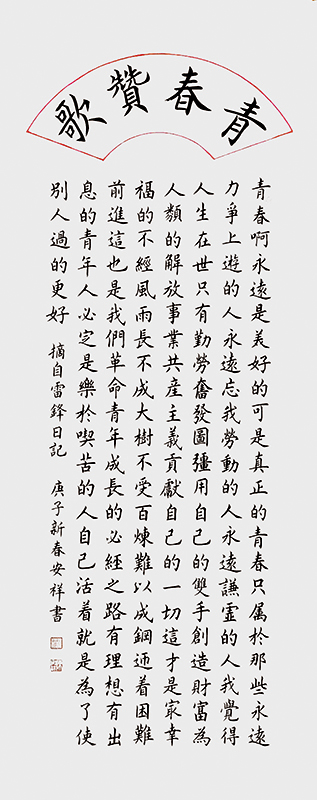 青春贊歌
青春啊永遠是美好的可是真正的青春只属於那些永遠
力爭上遊的人永遠忘我勞動的人永遠謙虛的人我覺得
人生在世只有勤勞奮發圖彊用自己的雙手創造財富為
人類的解放事業共産主義貢獻自己的一切這才是最幸
福的不經風雨長不成大樹不受百煉難以成鋼迊着困難
前進這也是我們革命青年成長的必經之路有理想有出
息的青年人必定是樂於喫苦的人自己活着就是為了使
別人過的更好 摘自雷鋒日記 庚子新春安祥書